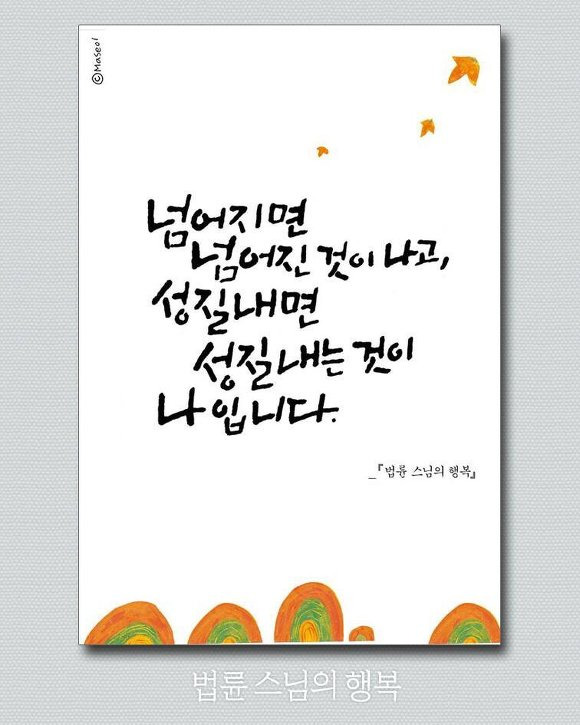 ©Maseol
넘어지면
넘어진 것이 나고,
성질내면
성질내는 것이
나입니다.
_『법륜 스님의 행복』
법륜 스님의 행복